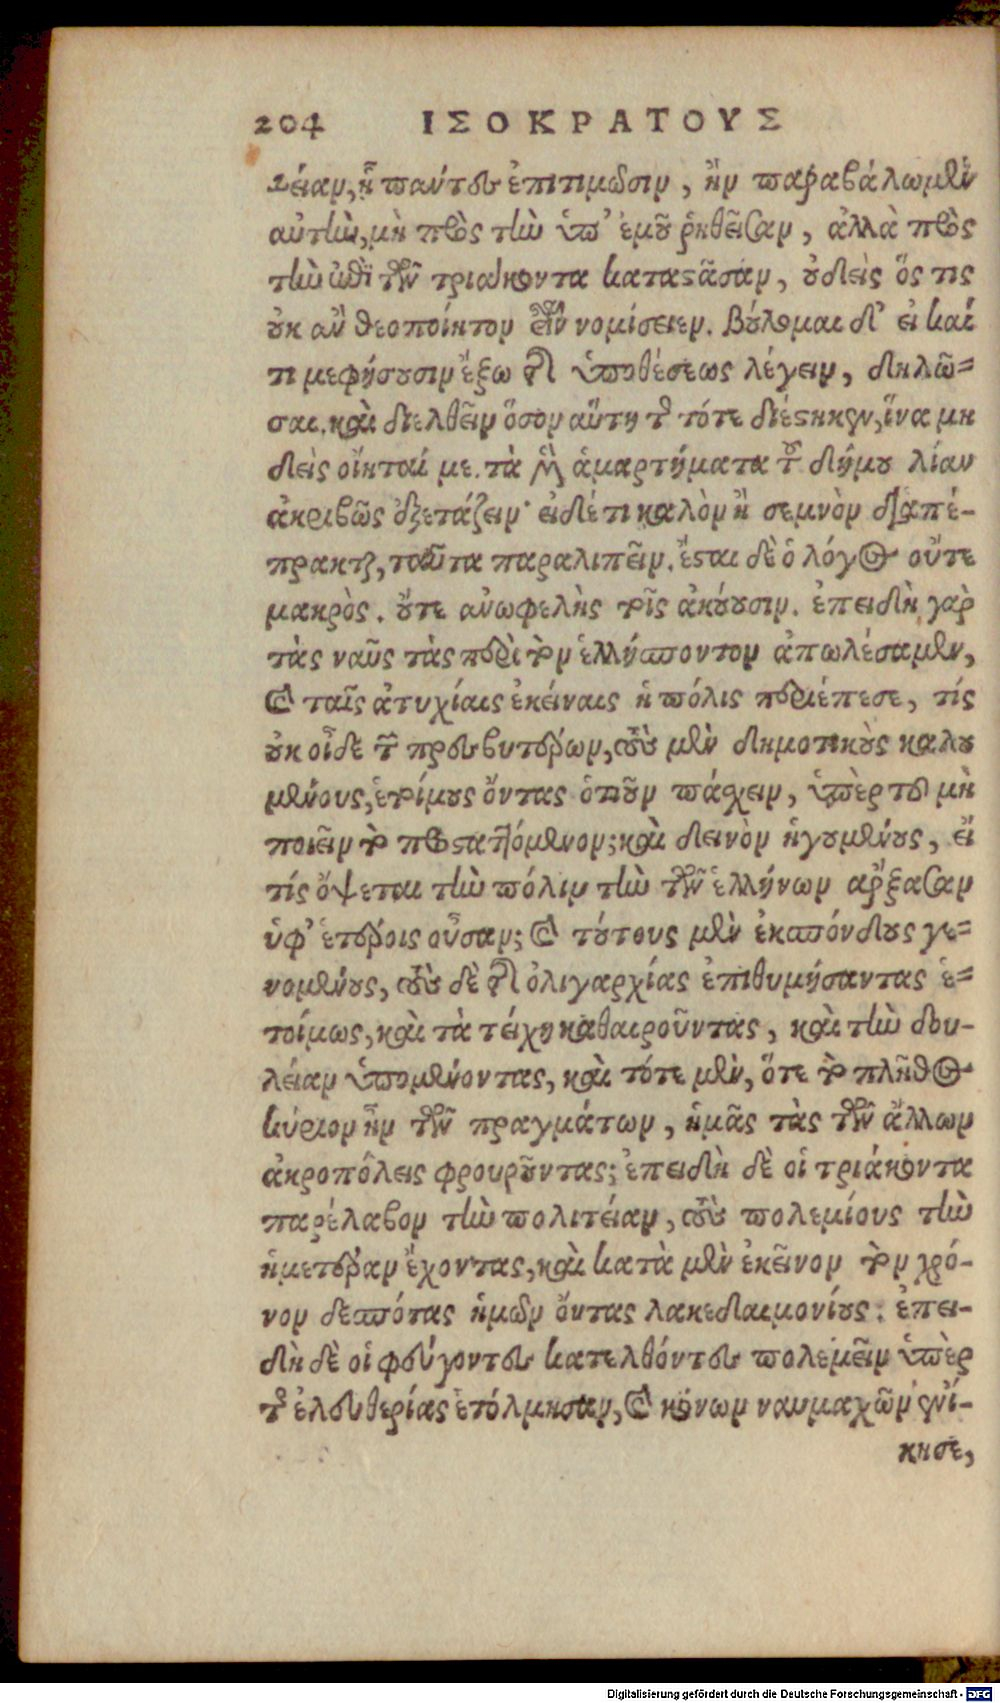 204 ΙΣΟΚΡΑΤΟΥΣ
τείαν, ᾗ πάντες ἐπιτιμῶσιν, ἢν παραβάλωμεν
αὐτὴν, μὴ πρὸς τὴν ὑπ' ἐμοῦ ῥηθεῖσαν, ἀλλὰ πρὸς
τὴν ἐπὶ τῶν τριάκοντα καταστᾶσαν, οὐδεὶς ὅς τις
οὐκ ἂν θεοποίητον εἶναι νομίσειεν. Βούλομαι δ' εἰ καί
τι μεφήσουσιν ἔξω τῆς ὑποθέσεως λέγειν, δηλῶ-
σαι, καὶ διελθεῖν ὅσον αὕτη τῆς τότε διέστηκεν, ἵνα μη
δεὶς οἴηταί με τὰ μὲν ἁμαρτήματα τοῦ δήμου λίαν
ἀκριβῶς ἐξετάζειν· εἰ δέ τι καλὸν ἢ σεμνὸν διαπέ-
πρακται, ταῦτα παραλιπεῖν. ἔσται δὲ ὁ λόγος οὔτε
μακρὸς, οὔτε ἀνωφελὴς τοῖς ἀκούουσιν. ἐπειδὴ γὰρ
τὰς ναῦς τὰς περὶ τὸν ἑλλήσποντον ἀπωλέσαμεν,
καὶ ταῖς ἀτυχίαις ἐκείναις ἡ πόλις περιέπεσε, τίς
οὐκ οἶδε τῶν πρεσβυτέρων, τοὺς μὲν δημοτικοὺς καλου
μένους, ἑτοίμους ὄντας ὁτιοῦν πάσχειν, ὑπὲρ τοῦ μὴ
ποιεῖν τὸ προσταττόμενον; καὶ δεινὸν ἡγουμένους, εἴ
τίς ὄψεται τὴν πόλιν τὴν τῶν ἑλλήνων ἄρξασαν
ὑφ' ἑτέροις οὖσαν; καὶ τούτους μὲν ἐκσπόνδους γε-
νομένους, τοὺς δὲ τῆς ὀλιγαρχίας ἐπιθυμήσαντας ἑ-
τοίμως, καὶ τὰ τείχη καθαιροῦντας, καὶ τὴν δου-
λείαν ὑπομένοντας, καὶ τότε μὲν, ὅτε τὸ πλῆθος
κύριον ἦν τῶν πραγμάτων, ἡμᾶς τὰς τῶν ἄλλων
ἀκροπόλεις φρουροῦντας; ἐπειδὴ δὲ οἱ τριάκοντα
παρέλαβον τὴν πολιτείαν, τοὺς πολεμίους τὴν
ἡμετέραν ἔχοντας, καὶ κατὰ μὲν ἐκεῖνον τὸν χρό-
νον δεσπότας ἡμῶν ὄντας λακεδαιμονίους; ἐπει-
δὴ δὲ οἱ φεύγοντες κατελθόντες πολεμεῖν ὑπὲρ
τῆς ἐλευθερίας ἐτόλμησαν, καὶ κόνων ναυμαχῶν ἐνί-
κησε,
Digitalisierung gefördert durch die Deutsche Forschungsgemeinschaft - DFG